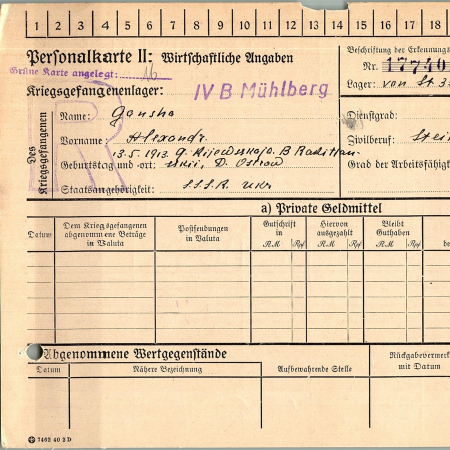 1 2 3 4 5 6 7 8 9 10 11 12 13 14 15 16 17 18
Personalkarte II: Wirtschaftliche Angaben
Beschriftung der Erkennungs
Grüne Karte angelegt:
Nr. 17740
Kriegsgefangenenlager: IV B Mühlberg
Lager: von St 3
Des Kriegsgefangenen
R
Name: Gansha
Dienstgrad:
Vorname: Alexandr
Zivilberuf: Stei
Geburtstag und -ort: 13.5.1913
Grad der Arbeitsfähig
Staatsangehörigkeit: SSSR ukr
a) Private Geldmittel
Datum
Dem Kriegsgefangenen abgenommene Beträge in Valuta
Postsendungen in Valuta
Gutschrift in
RM Rpf
Hiervon ausgezahlt
RM Rpf
Bleibt Guthaben
RM Rpf
be
Abgenommene Wertgegenstände
Datum
Nähere Bezeichnung
Aufbewahrende Stelle
Rückgabevermerk mit Datum
7462 40 2 D